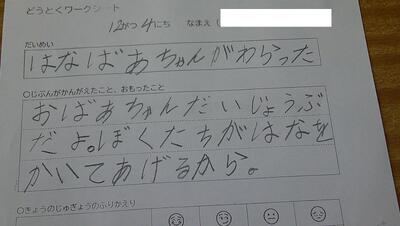 どうとくワークシート
12がつ4にち なまえ(
だいめい
はなばあちゃんがわらった
○じぶんがかんがえたこと、おもったこと
おばあちゃんだいじょうぶ
だよ。ぼくたちがはなを
かいてあげるから。
○きょうのじゅぎょうのふりかえり